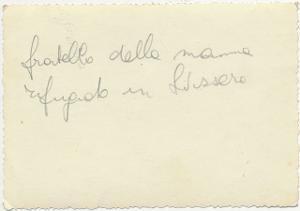 fratello della mamma
rifugiato in Svizzera